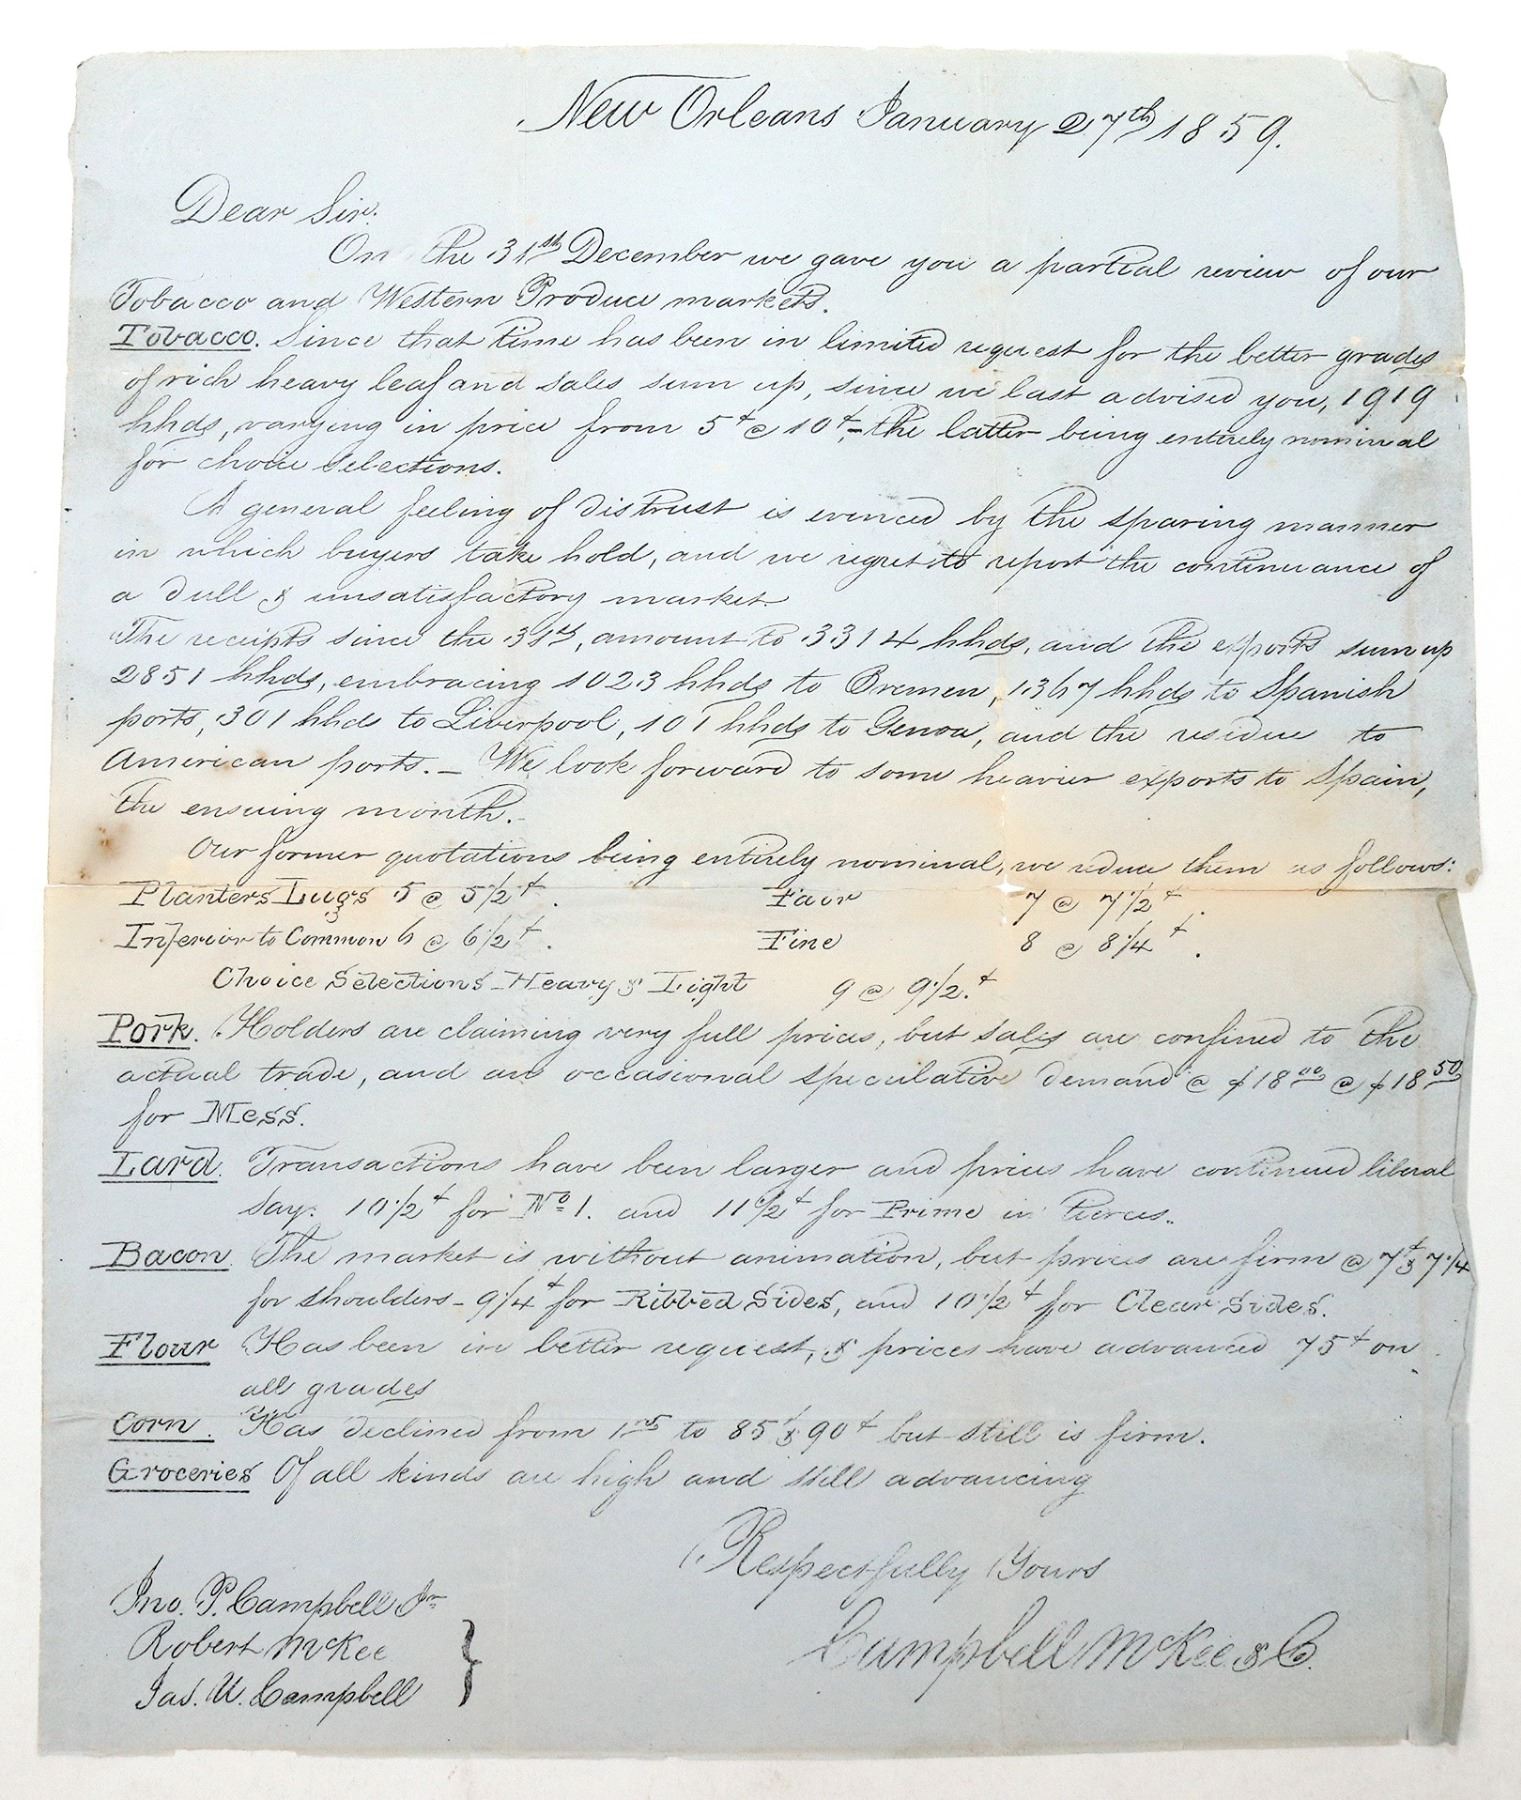 New Orleans January 27th 1859.
Dear Sir:
On the 31st December we gave you a partial review of our
Tobacco and Western Produce markets.
Tobacco. Since that time has been in limited request for the better grades
of rich heavy leaf and sales sum up, since we last advised you, 1919
hhds, varying in price from 5¢ @ 10¢,- the latter being entirely nominal
for choice selections.
A general feeling of distrust is evinced by the sparing manner
in which buyers take hold, and we regret to report the continuance of
a dull & unsatisfactory market.
The receipts since the 31st, amount to 3314 hhds, and the exports sum up
2851 hhds, embracing 1023 hhds to Bremen, 1367 hhds to Spanish
ports, 301 hhds to Liverpool, 101 hhds to Genoa, and the residue to
American ports. - We look forward to some heavier exports to Spain,
the ensuing month.-
Our former quotations being entirely nominal, we reduce them as follows:
Planters Lugs 5 @ 5 1/2 ¢. Fair 7 @ 7 1/2 ¢.
Inferior to Common 6 @ 6 1/2 ¢. Fine 8 @ 8 1/4 ¢.
Choice Selections - Heavy & Light 9 @ 9 1/2.¢
Pork. Holders are claiming very full prices, but sales are confined to the
actual trade, and an occasional speculative demand @ $18 00 @ $18 50
for Mess.
Lard. Transactions have been larger and prices have continued liberal
say: 10 1/2 ¢ for No 1. and 11 1/2 ¢ for Prime in tierces.
Bacon. The market is without animation, but prices are firm @ 7¢ & 7 1/4
for shoulders - 9 1/4 ¢ for Ribbed Sides, and 10 1/2 ¢ for Clear Sides.
Flour Has been in better request, & prices have advanced 75¢ on
all grades
Corn. Has declined from 1 05 to 85 & 90¢ but still is firm.
Groceries Of all kinds are high and still advancing
Respectfully Yours
Campbell McKee & Co.
Jno. P. Campbell Jr
Robert McKee
Jas. U. Campbell